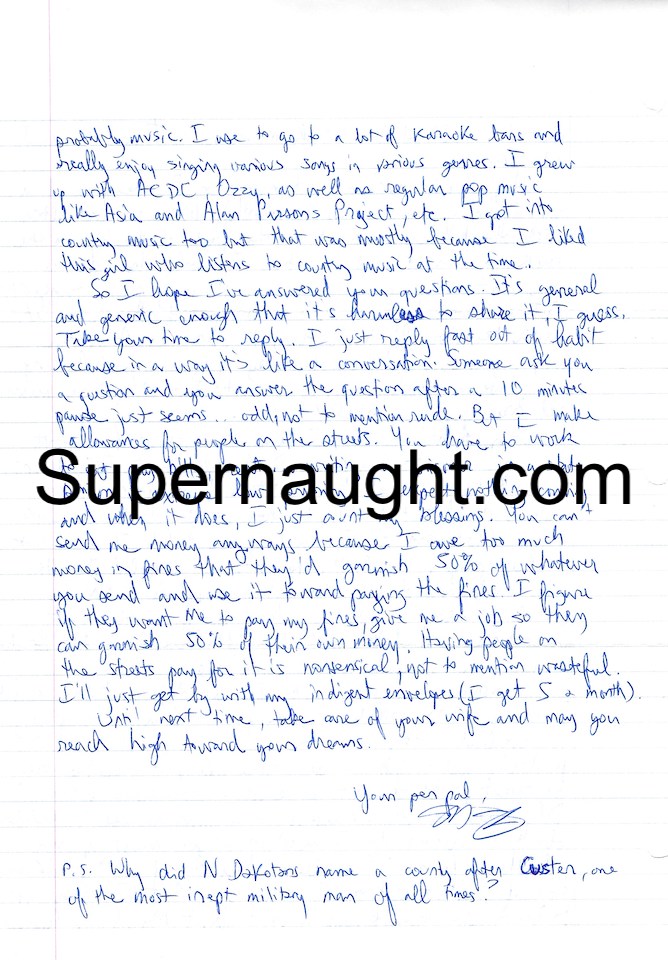 probably music. I use to go to a lot of karaoke bars and
really enjoy singing various songs in various genres. I grew
up with ACDC, Ozzy, as well as regular pop music
like Asia and Alan Parsons Project, etc. I got into
country music too but that was mostly because I liked
this girl who listens to country music at the time.
So I hope I've answered your questions. It's general
and generic enough that it's harmless to share it, I guess.
Take your time to reply. I just reply fast out of habit
because in a way it's like a conversation. Someone ask you
a question and you answer the question after a 10 minute
pause just seems... odd, not to mention rude. But I make
allowances for people on the streets. You have to work
Supernaught.com
and when it does, I just count my blessings. You can't
send me money anyways because I owe too much
money in fines that they'd garnish 50% of whatever
you send and use it toward paying the fines. I figure
if they want me to pay my fines, give me a job so they
can garnish 50% of their own money. Having people on
the streets pay for it is nonsensical, not to mention wasteful.
I'll just get by with my indigent envelopes (I get 5 a month).
Until next time, take care of your wife and may you
reach high toward your dreams.
Your pen pal,
P.S. Why did N Dakotans name a county after Custer, one
of the most inept military man of all times?